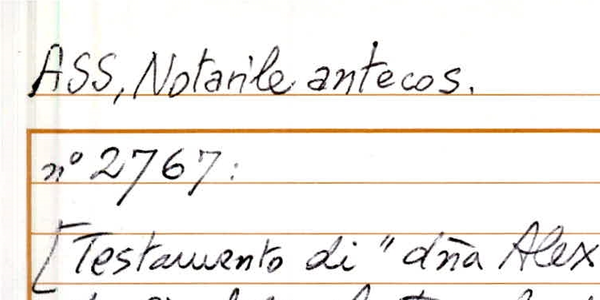 ASS, Notarile antecos.
n° 2767:
[Testamento di "dña Alex